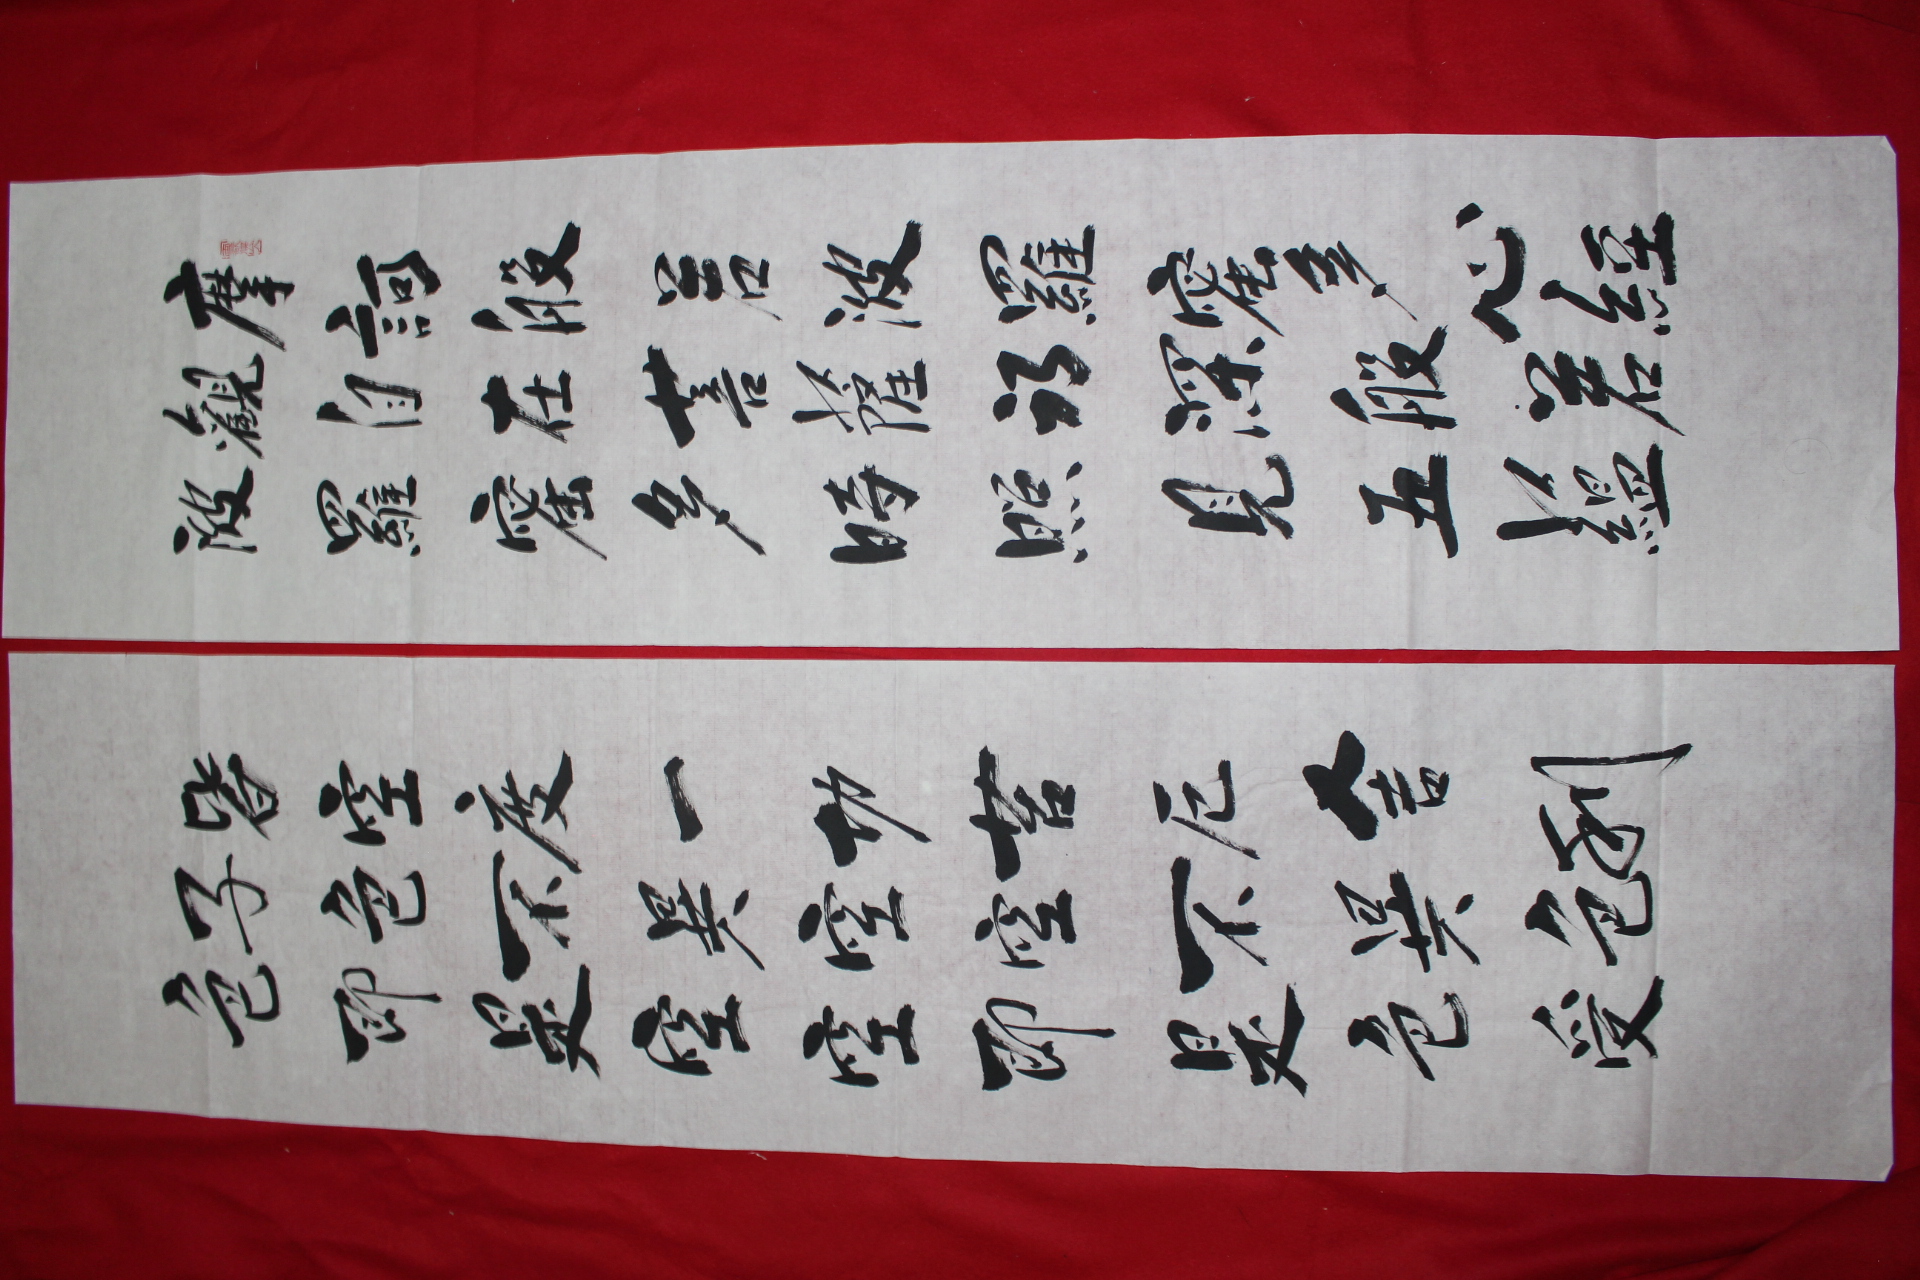 摩訶般若波羅蜜多心經
觀自在菩薩行深般若
波羅蜜多時照見五蘊
皆空度一切苦厄舍利
子色不異空空不異色
色即是空空即是色受